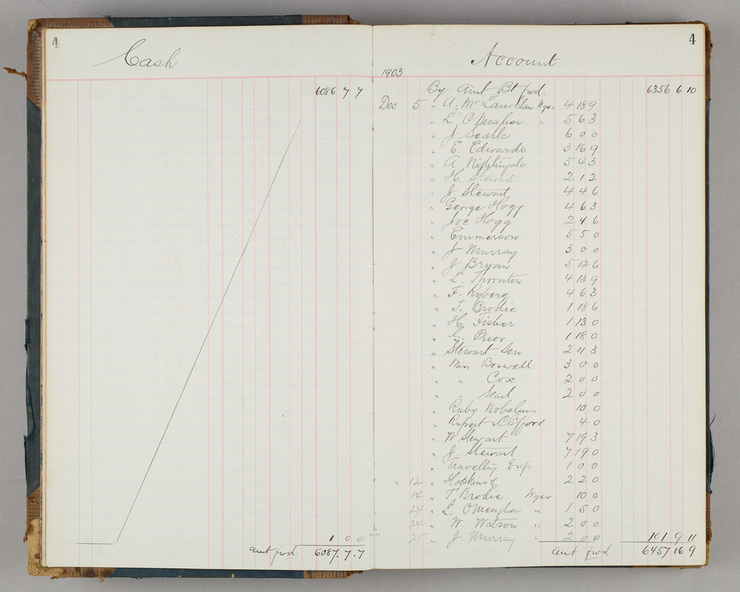 4
Cash
6086 7 7
1 0 0
amt fwd 6087.7.7
4
Account
1903
By Amt Bt fwd. 6356 6 10
Dec 5 " A. Wges 4 18 9
" L. O'Meagher " 5 6 3
" J 6 0 0
" E Edwards 3 16 9
" A Nightingale 5 4 3
" H. Stewart 2 1 2
" J Stewart 4 4 6
" George Hogg 4 6 3
" Joe Hogg 2 4 6
" Emmerson 5 5 0
" J Murray 3 0 0
" J Bryan 5 12 6
" L. Thornton 4 13 9
" F. Ryberg 4 6 3
" T. Brodie 1 18 6
" H. Fisher 1 13 0
" G. Prior 1 18 0
" Stewart Sen 2 11 3
" Miss 3 0 0
" " Cox 2 0 0
" " 2 0 0
" Ruby 10 0
" Rupert & Clifford 4 0
" W Stewart 7 19 3
" J. Stewart 7 19 0
" Travelling Exps 1 0 0
" 12 " Hopkins 2 2 0
" 14 " T Brodie Wges 10 0
" 24 " L. O'Meagher " 1 5 0
" 24 " W. Watson " 2 0 0
" 25 " J. Murray " 2 0 0 101 9 11
amt fwd 6457 16 9